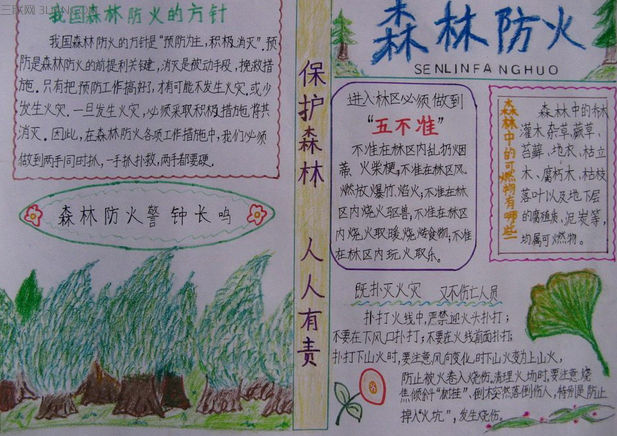 三联网 3LIAN.COM
我国森林防火的方针
我国森林防火的方针是“预防为主，积极消灭”.预
防是森林防火的前提和关键，消灭是被动手段，挽救措
施.只有把预防工作搞好，才有可能不发生火灾或少
发生火灾.一旦发生火灾，必须采取积极措施将其
消灭.因此，在森林防火各项工作措施中，我们必须
做到两手同时抓，一手抓扑救，两手都要硬.
森林防火警钟长鸣
保护森林 人人有责
森林防火
SENLINFANGHUO
进入林区必须做到
“五不准”
不准在林区内乱扔烟
蒂、火柴梗，不准在林区风
燃放爆竹、焰火；不准在林
区内烧火驱兽；不准在林区
内烧火取暖、烧烤食物；不准
在林区内玩火取乐。
森林中的可燃物有哪些
森林中的林
灌木杂草、蕨草，
苔藓、地衣、枯立
木、腐朽木、枯枝
落叶以及地下层
的腐殖质、泥炭等，
均属可燃物。
既扑灭火灾 又不伤亡人员
扑打火线中，严禁迎火头扑打；
不要在下风口扑打；不要在火线前面扑打；
扑打下山火时，要注意风向变化，时下山火变为上山火，
防止被火卷入烧伤.清理火场时，要注意烧
焦倾斜“树挂”、倒木突然落倒伤人，特别是防止
掉入“火坑”，发生烧伤。